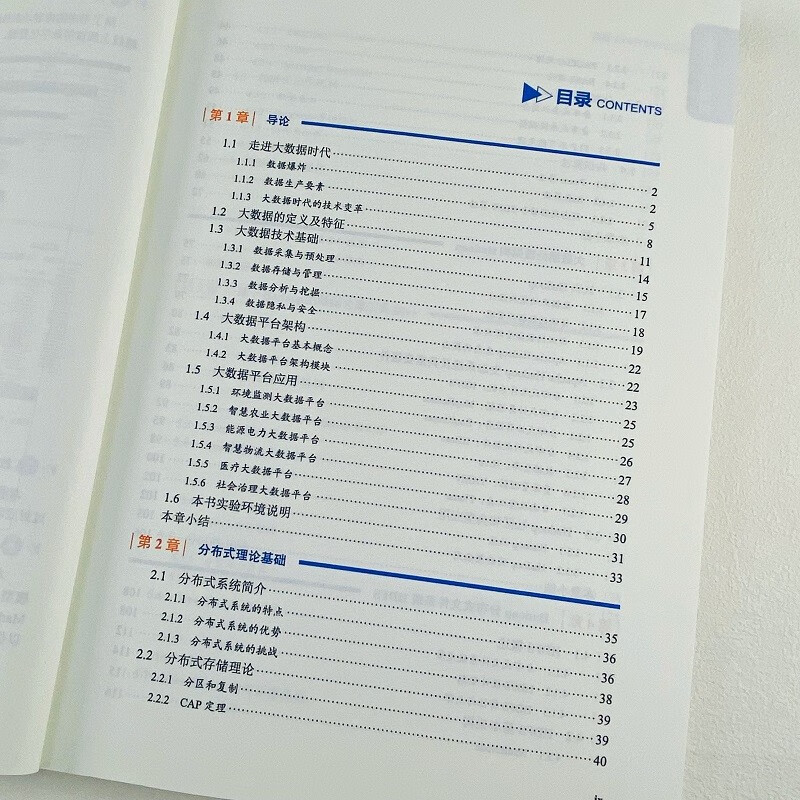 目录 CONTENTS
第 1 章 导论
1.1 走进大数据时代 2
1.1.1 数据爆炸 2
1.1.2 数据生产要素 5
1.1.3 大数据时代的技术变革 8
1.2 大数据的定义及特征 11
1.3 大数据技术基础 14
1.3.1 数据采集与预处理 15
1.3.2 数据存储与管理 17
1.3.3 数据分析与挖掘 18
1.3.4 数据隐私与安全 19
1.4 大数据平台架构 22
1.4.1 大数据平台基本概念 22
1.4.2 大数据平台架构模块 23
1.5 大数据平台应用 25
1.5.1 环境监测大数据平台 25
1.5.2 智慧农业大数据平台 26
1.5.3 能源电力大数据平台 27
1.5.4 智慧物流大数据平台 28
1.5.5 医疗大数据平台 29
1.5.6 社会治理大数据平台 30
1.6 本书实验环境说明 31
本章小结 33
第 2 章 分布式理论基础
2.1 分布式系统简介 35
2.1.1 分布式系统的特点 36
2.1.2 分布式系统的优势 36
2.1.3 分布式系统的挑战 38
2.2 分布式存储理论 39
2.2.1 分区和复制 39
2.2.2 CAP 定理 40